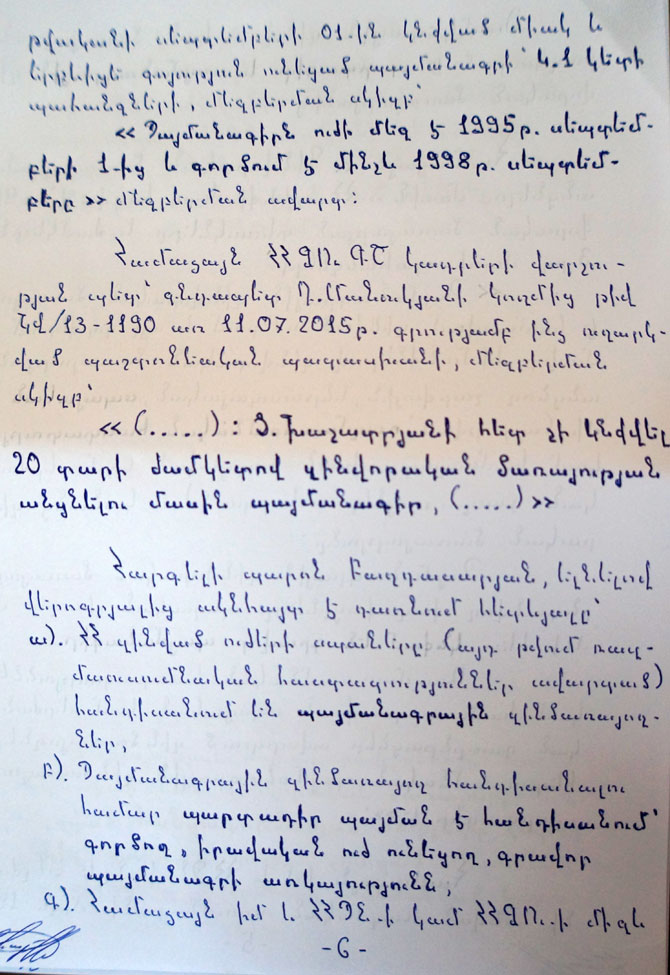 թվականի սեպտեմբերի 01.ին կնքված միակ և
երբևիցե գոյություն ունեցած պայմանագրի՝ 4.1 կետի
պահանջների, մեջբերման սկիզբ՝
<< Պայմանագիրն ուժի մեջ է 1995թ. սեպտեմ-
բերի 1-ից և գործում է մինչև 1998թ. սեպտեմ-
բերը >> մեջբերման ավարտ:
Համաձայն ՀՀ ԶՈւ ԳՇ կադրերի վարչու-
թյան պետ՝ գնդապետ Մանուկյանի կողմից թիվ
ԿՎ/13-1190 առ 11.07.2015թ. գրությամբ ինձ ուղարկ-
ված պաշտոնեական պատասխանի, մեջբերման
սկիզբ՝
<< (.....) : Ֆ. Խաչատրյանի հետ չի կնքվել
20 տարի ժամկետով զինվորական ծառայության
անցնելու մասին պայմանագիր, (.....) >>
Հարգելի պարոն Բաղդասարյան, ելնելով
վերոգրյալից ակնհայտ է դառնում հետևյալը՝
ա). ՀՀ զինված ուժերի սպաները (այդ թվում ռազ-
մաուսումնական հաստատություններ ավարտած)
հանդիսանում են պայմանագրային զինծառայող-
ներ,
բ). Պայմանագրային զինծառայող հանդիսանալու
համար պարտադիր պայման է հանդիսանում՝
գործող, իրավական ուժ ունեցող, գրավոր
պայմանագրի առկայությունն,
գ). Համաձայն իմ և ՀՀ ՊՆ.ի կամ ՀՀ ԶՈւ.ի միջև
-6-